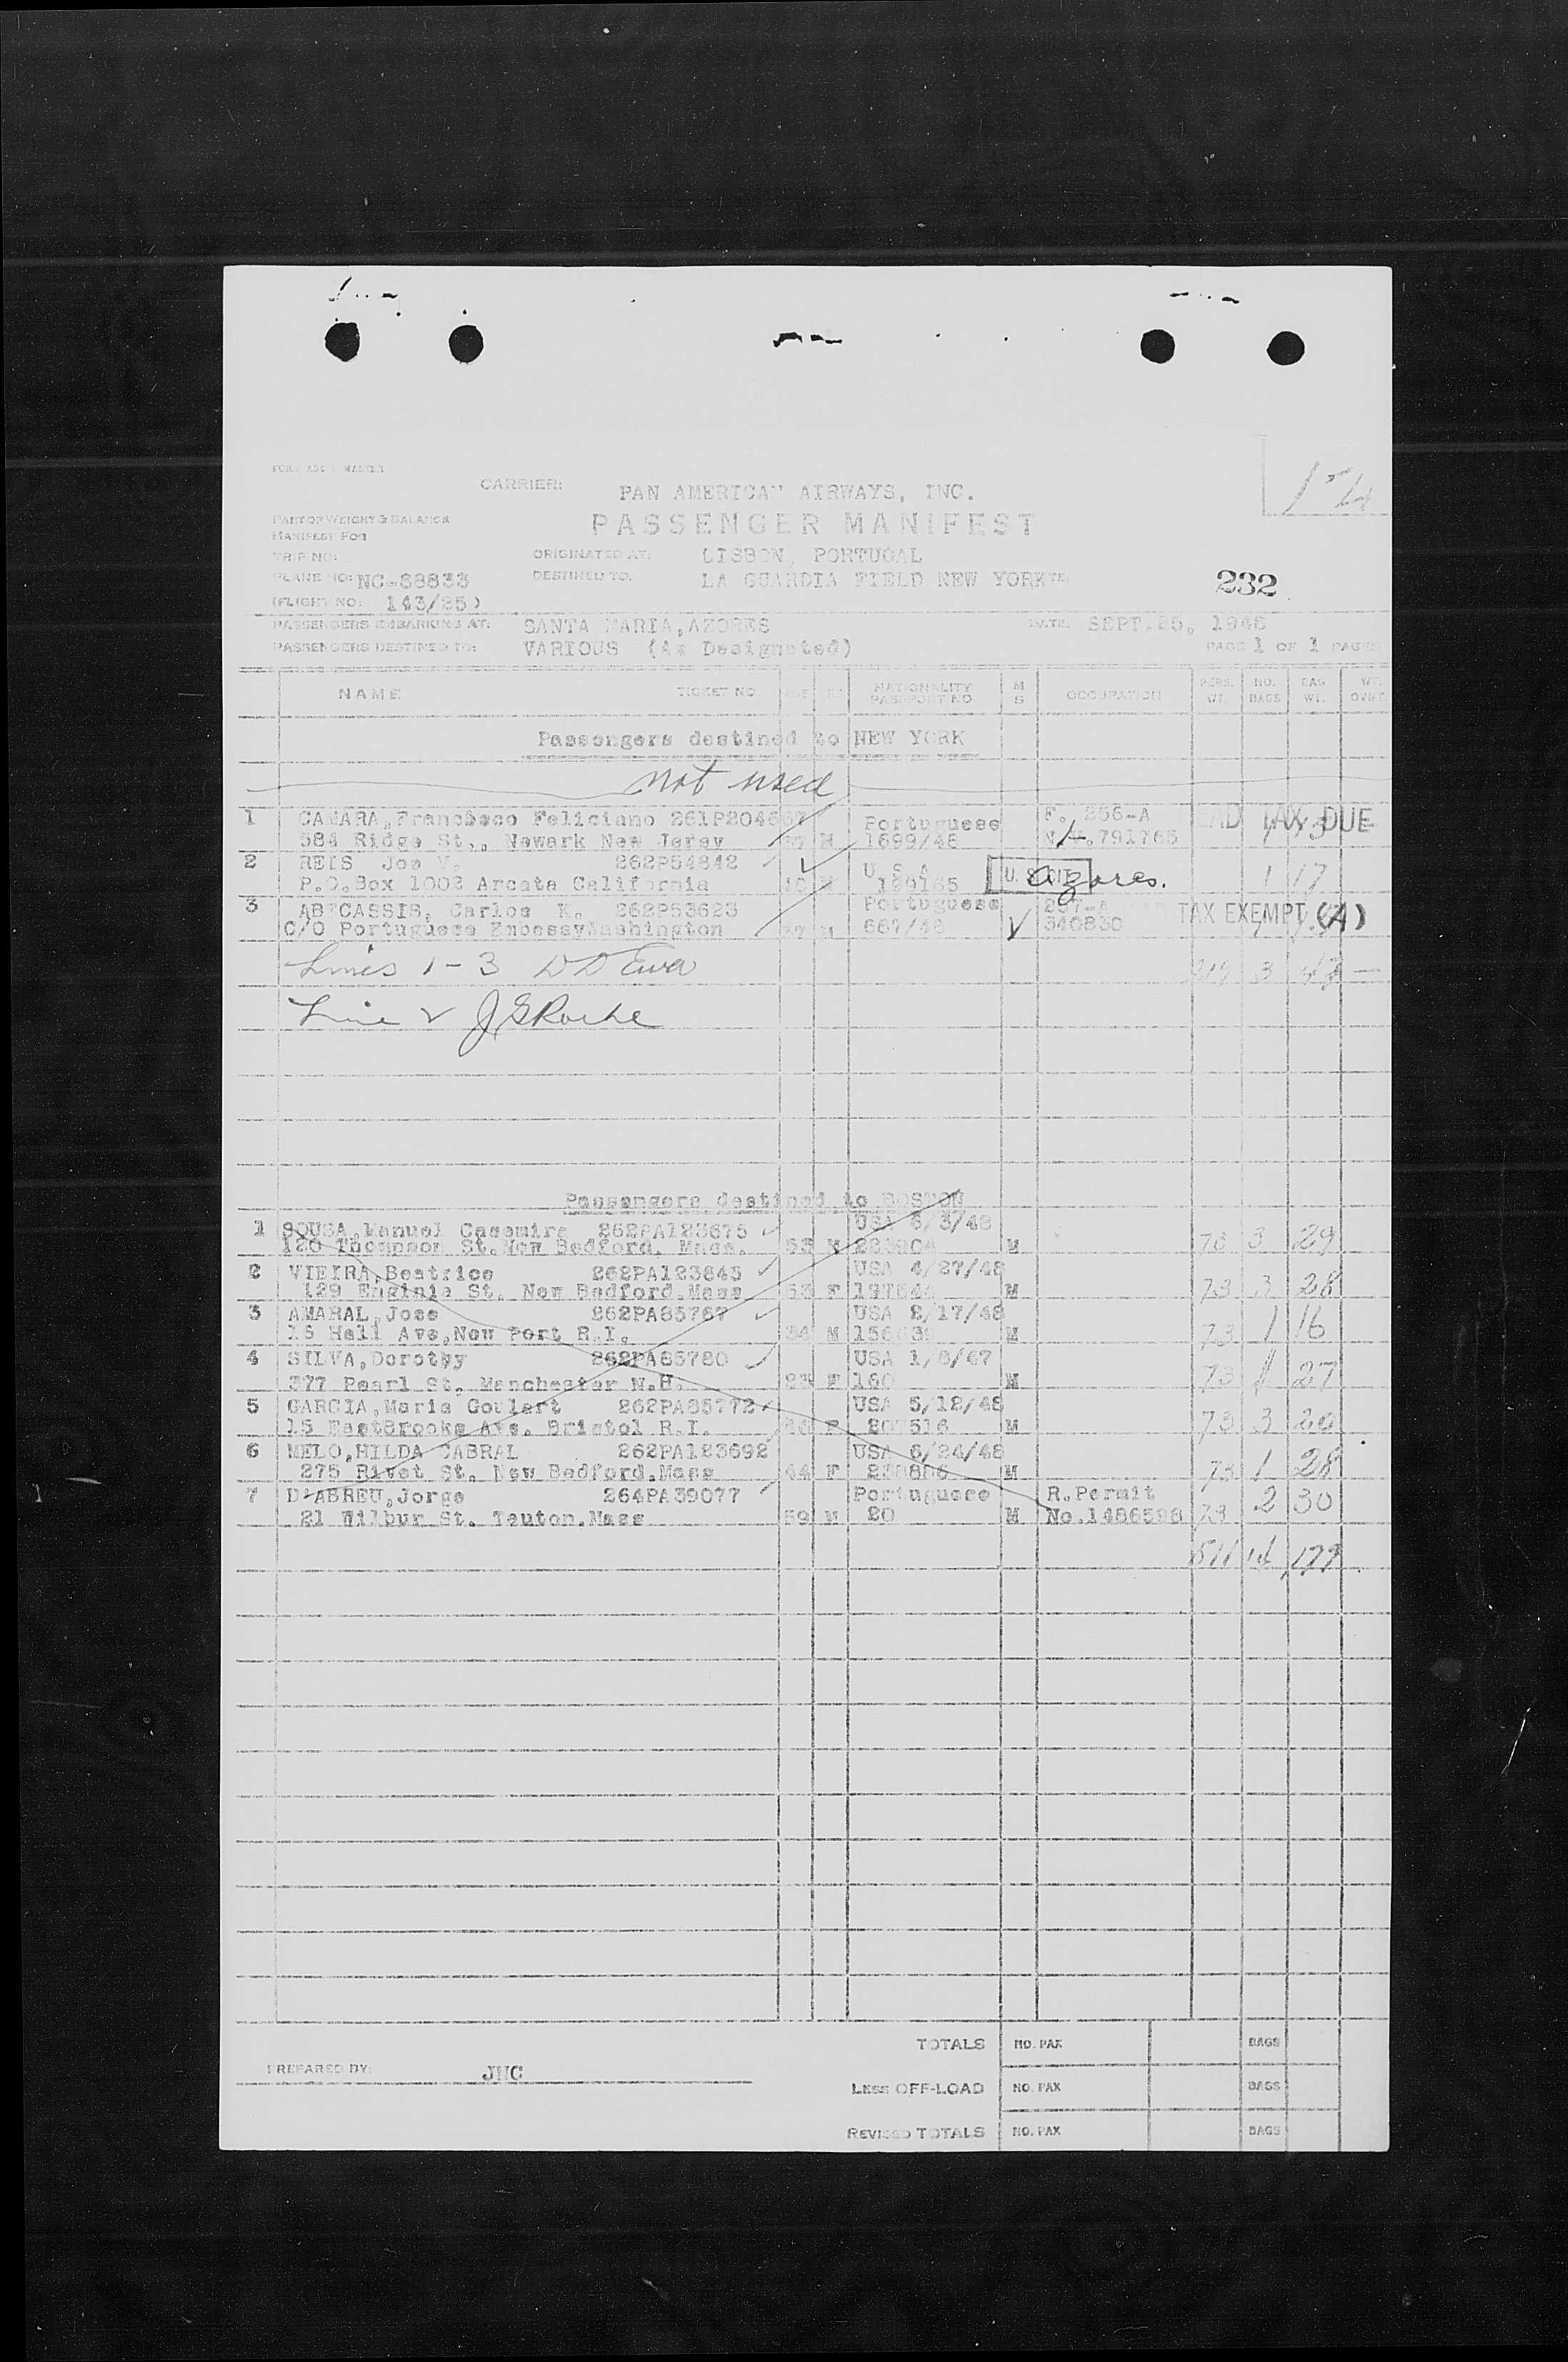 CARRIER: PAN AMERICAN AIRWAYS, INC.
PASSENGER MANIFEST
PART OF WEIGHT & BALANCE
MANIFEST FOR
TRIP NO:
ORIGINATED AT: LISBON, PORTUGAL
PLANE NO: NC-88833
DESTINED TO. LA GUARDIA FIELD NEW YORK
232
(FLIGHT NO: 143/25)
PASSENGERS EMBARKING AT: SANTA MARIA,AZORES DATE: SEPT.25, 1948
PASSENGERS DESTINED TO: VARIOUS (As Designated) PAGE 1 OF 1 PAGES
NAME TICKET NO AGE SEX NATIONALITY PASSPORT NO M S OCCUPATION PERS. WT. NO. BAGS BAG WT. WT.
Passengers destined to NEW YORK
not used
1 CAMARA,Francisco Feliciano Portuguese F. 256-A HEAD TAX DUE
584 Ridge St,, Newark New Jersy M 1699/48 791765
2 REIS Joe V. 262P54842 U S A 1 17
P.O.Box 1002 Arcata California M 199165 U.S. CIT Azores.
3 Carlos K. 262P53623 Portuguese 257-A TAX EXEMPT (A)
C/O Portuguese EmbassyWashington M 667/48 340830
Lines 1-3 3
Line 2 J G Roche
Passengers destined to BOSTON
1 SOUSA,Manuel Casemire 262PA123675 USA 6/3/48
120 Thompson St.New Bedford. Mass. 53 M M 73 3 29
2 VIEIRA,Beatrice 262PA123845 USA 4/27/48
129 St. New Bedford.Mass 53 F M 73 3 28
3 AMARAL,Jose 262PA85767 USA 2/17/48
15 Hall Ave,New Port R.I. M M 73 1 16
4 SILVA,Dorothy 262PA85780 USA 1/8/47
377 Pearl St. Manchester N.H. F M 73 1 27
5 GARCIA,Maria Goulart 262PA85772 USA 5/12/48
15 EastBrooks Ave. Bristol R.I. F M 73 3 20
6 MELO,HILDA CABRAL 262PA123692 USA 6/24/48
275 Rivet St. New Bedford.Mass 44 F M 73 1 28
7 D'ABREU,Jorge 264PA39077 Portuguese R.Permit
21 Wilbur St. Tauton.Mass 59 M 20 M 73 2 30
511 14
TOTALS NO. PAX BAGS
PREPARED BY: JHC
LESS OFF-LOAD NO. PAX BAGS
REVISED TOTALS NO. PAX BAGS